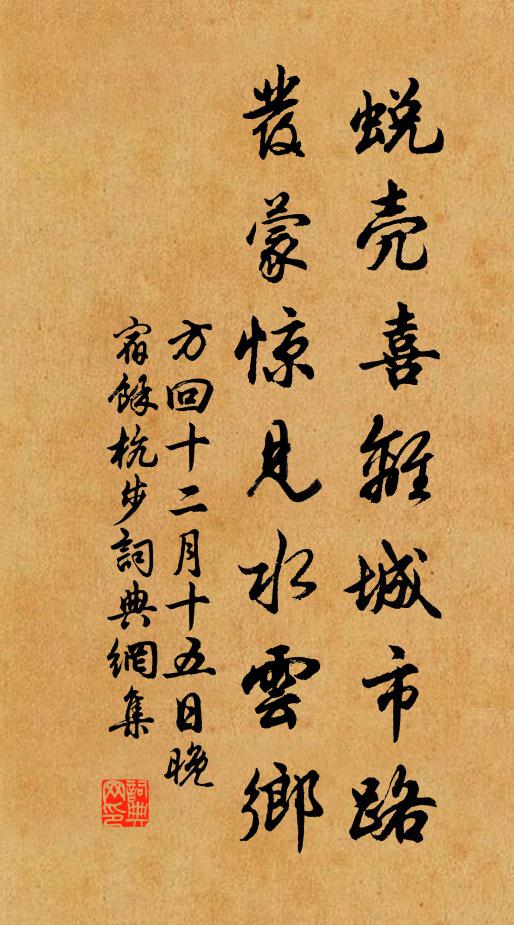 蜕壳喜離城市路
發蒙惊見水雲鄉
方回十二月十五日晚
宿餘杭步詞典網集
詞典网印